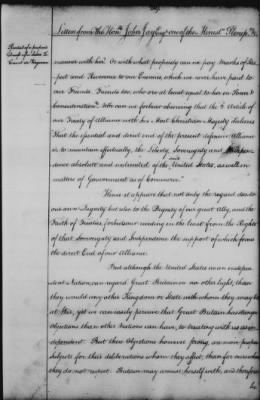 Letters from the Honble John Jay Esqr one of the Minist. Plenip. &c
manner with him? Or with what propriety can we pay marks of Respect
and Reverence to our Enemies, which we never have paid to
our Friends. Friends too who are at least equal to her in Power &
Consideration. Who can we forbear observing that the 2d Article of
our Treaty of Alliance with his Most Christian Majesty declares
That the essential and direct end of the present defensive Alliance
is to maintain effectually, the Liberty, Sovereignty and Independence
absolute and unlimited of the United States, as well in
matters of Government as of Commerce."
Hence it appears that not only the regard due to
our own Dignity but also to the Dignity of our great Ally, and the
Faith of Treaties, forbid our receding in the least from the Rights
of that Sovereignty and Independence the support of which forms
the direct End of our Alliance.
But although the United States as an independent
Nation, can regard Great Britain in no other light, than
they would any other Kingdom or State with whom they may be
at War, yet we can easily perceive that Great Britain has stronger
objections than other Nations can have, to treating with us as independent.
But their Objections however strong, are more proper
subjects for their deliberations whom they affect, than for ours whom
they do not respect. Britain may amuse herself with, and therefore
be